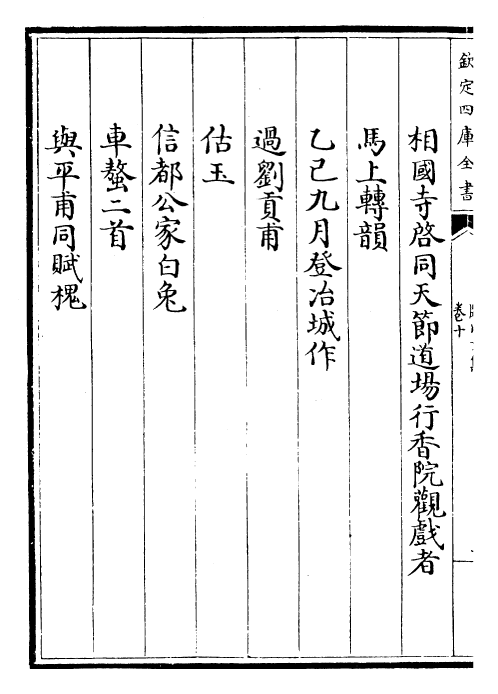 欽定四庫全書
卷十
相國寺啓同天節道場行香院觀戲者
馬上轉韻
乙己九月登冶城作
過劉貢甫
估玉
信都公家白兔
車螯二首
與平甫同賦槐